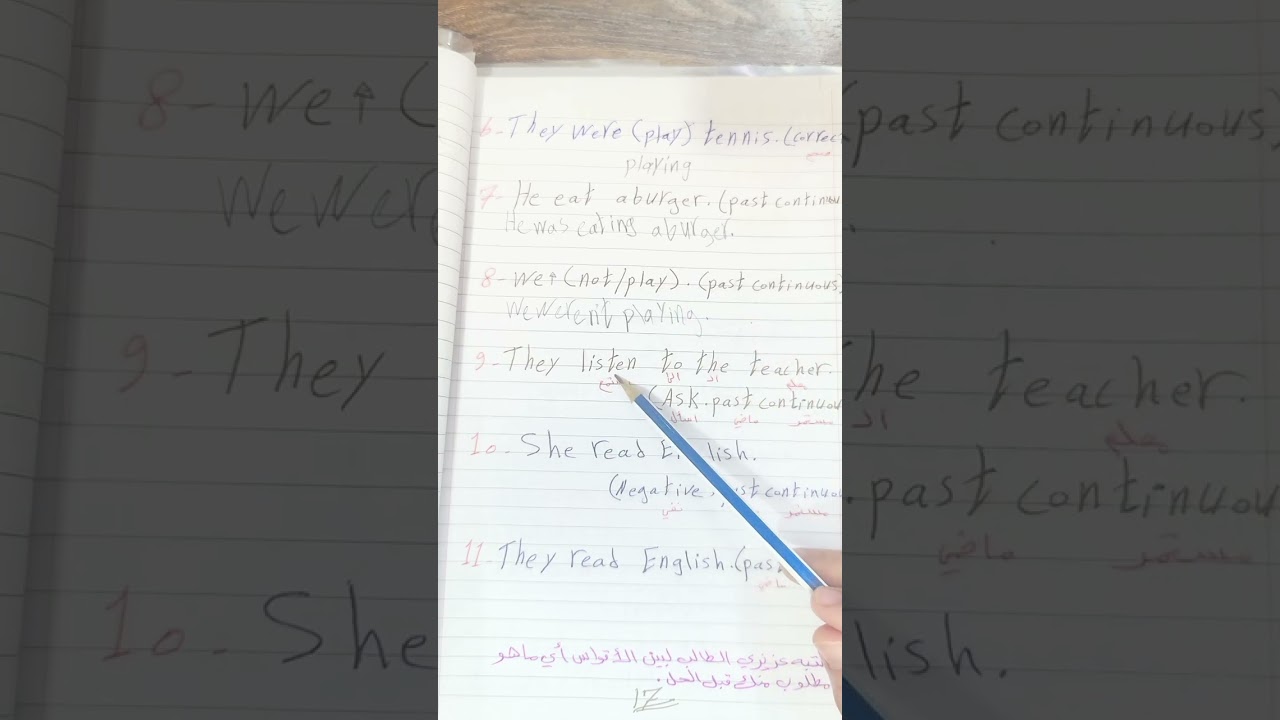 6- They were (play) tennis. (correc
صحح
playing
7- He eat aburger. (past continuou
He was eating aburger.
8- We↑ (not/play). (past continuous)
We weren't playing.
9- They listen to the teacher.
الى ال معلم
(Ask. past continuou
اسأل ماضي مستمر
10- She read lish.
(Negative. continuou
نفي مستمر
11- They read English. (pas
ماضي
انتبه عزيزي الطالب لبين الأقواس أي ماهو
مطلوب منك قبل الحل.
17